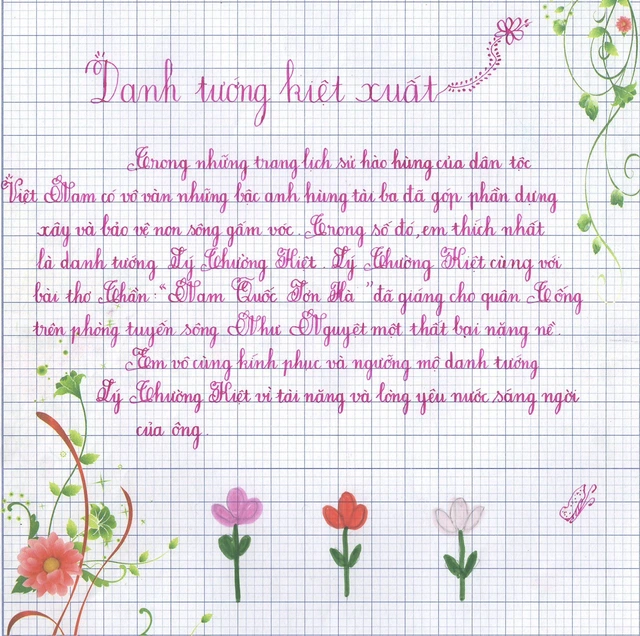 Danh tướng kiệt xuất
Trong những trang lịch sử hào hùng của dân tộc
Việt Nam có vô vàn những bậc anh hùng tài ba đã góp phần dựng
xây và bảo vệ non sông gấm vóc. Trong số đó, em thích nhất
là danh tướng Lý Thường Kiệt. Lý Thường Kiệt cùng với
bài thơ Thần: "Nam Quốc Sơn Hà" đã giáng cho quân Tống
trên phòng tuyến sông Như Nguyệt một thất bại nặng nề.
Em vô cùng kính phục và ngưỡng mộ danh tướng
Lý Thường Kiệt vì tài năng và lòng yêu nước sáng ngời
của ông.